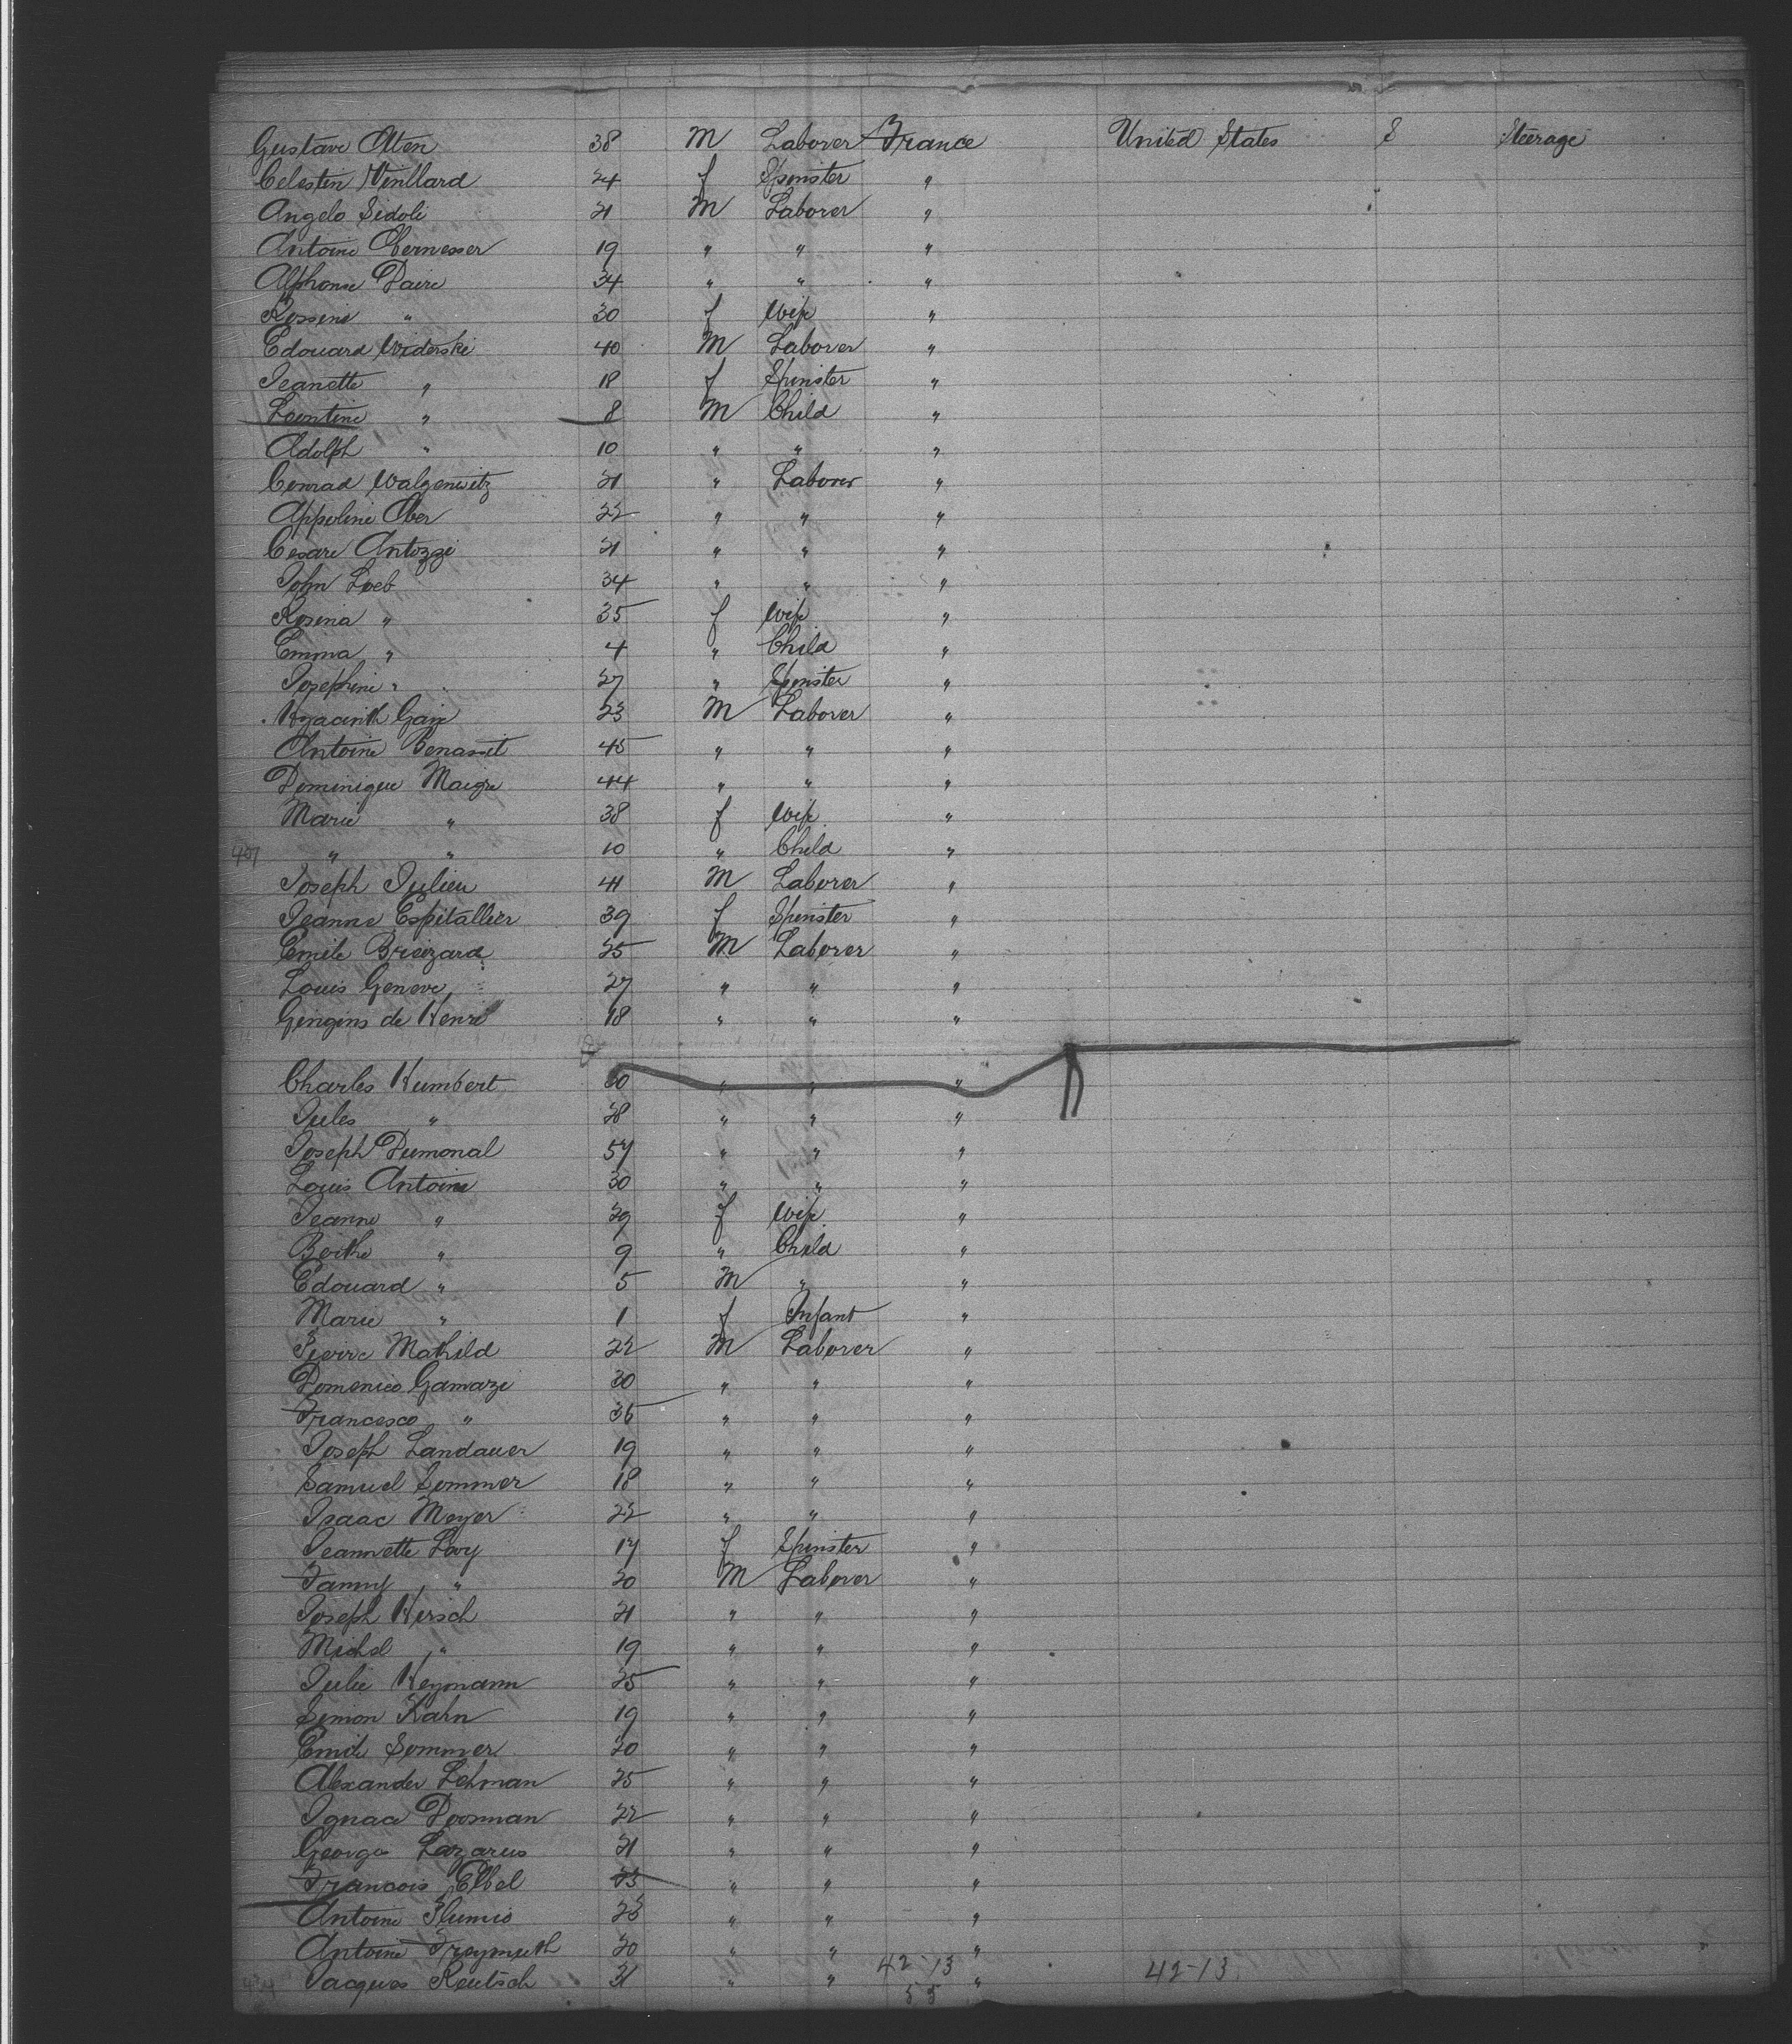 Gustave Otten 38 M Laborer France United States S Steerage
Celestin Vinillard 24 f Spinster "
Angelo Sidoli 21 M Laborer "
Antoine Obernesser 19 " " "
Alphonse Paire 34 " " "
Rossine " 30 f Wife "
Edouard Widerski 40 M Laborer "
Jeanette " 18 f Spinster "
Leontine " 8 M Child "
Adolph " 10 " " "
Conrad Walgenwitz 21 " Laborer "
Appoline Ober 22 " " "
Cesare Antozzi 21 " " "
John Loeb 34 " " "
Rosina " 35 f Wife "
Emma " 4 " Child "
Josephine " 27 " Spinster "
Hyacinth 23 M Laborer "
Antoine Benassit 45 " " "
Dominique Maigre 44 " " "
Marie " 38 f Wife "
407 " " 10 " Child "
Joseph Julien 41 M Laborer "
Jeanne Espitallier 39 f Spinster "
Emile Brieizard 25 M Laborer "
Louis Geneve 27 " " "
Gingins de Henri 18 " " "
Charles Humbert 30 " " "
Jules " 28 " " "
Joseph Dumonal 57 " " "
Louis Antoine 30 " " "
Jeanne " 29 f Wife "
Berthe " 9 " Child "
Edouard " 5 M " "
Marie " 1 f Infant "
Pierre Mathild 22 M Laborer "
Domenico Gamazi 30 " " "
Francesco " 36 " " "
Joseph Landauer 19 " " "
Samuel Sommer 18 " " "
Isaac Meyer 22 " " "
Jeannette Levy 17 f Spinster "
Fanny " 20 M Laborer "
Joseph Hirsch 21 " " "
Michel " 19 " " "
Julie Heymann 25 " " "
Simon Kahn 19 " " "
Emile Sommer 20 " " "
Alexander Lehman 25 " " "
Ignace Dosman 22 " " "
Georges Lazarus 21 " " "
Francois Elbel 23 " " "
Antoine Plumio 23 " " "
Antoine Freymuth 20 " " "
Jacques Reutsch 31 " " "
42-13 42-13
55